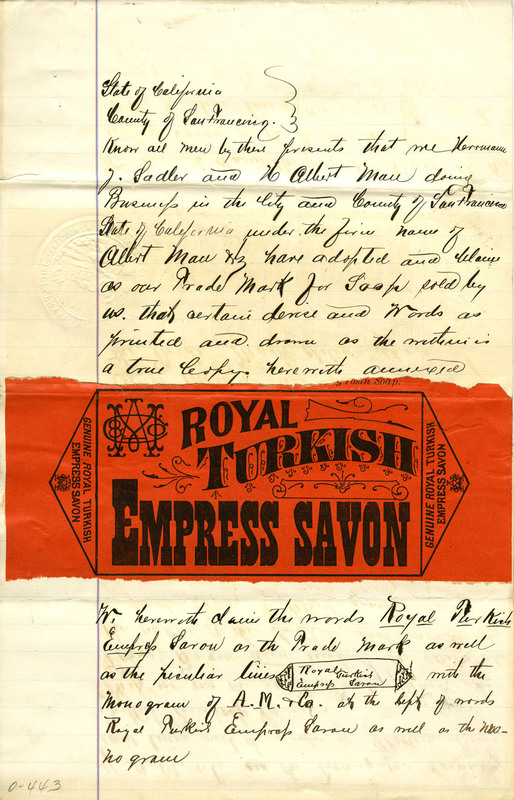 State of California
County of San Francisco.
Know all men by these presents that we Hermann
J. Sadler and H Albert Mau doing
Business in the City and County of San Francisco
State of California under the firm name of
Albert Mau & Co have adopted and claim
as our Trade Mark for Soap sold by
us. that certain devise and Words as
printed and drawn as the within is
a true Copy. herewith annexed
Soap.
ROYAL
TURKISH
EMPRESS SAVON
GENUINE ROYAL TURKISH
EMPRESS SAVON
GENUINE ROYAL TURKISH
EMPRESS SAVON
We herewith claim the words Royal Turkish
Empress Savon as the Trade Mark as well
as the peculiar lines Royal Turkish Empress Savon with the
Monogram of A. M. & Co. at the left of words
Royal Turkish Empress Savon as well as the mo-
nogram
0-443